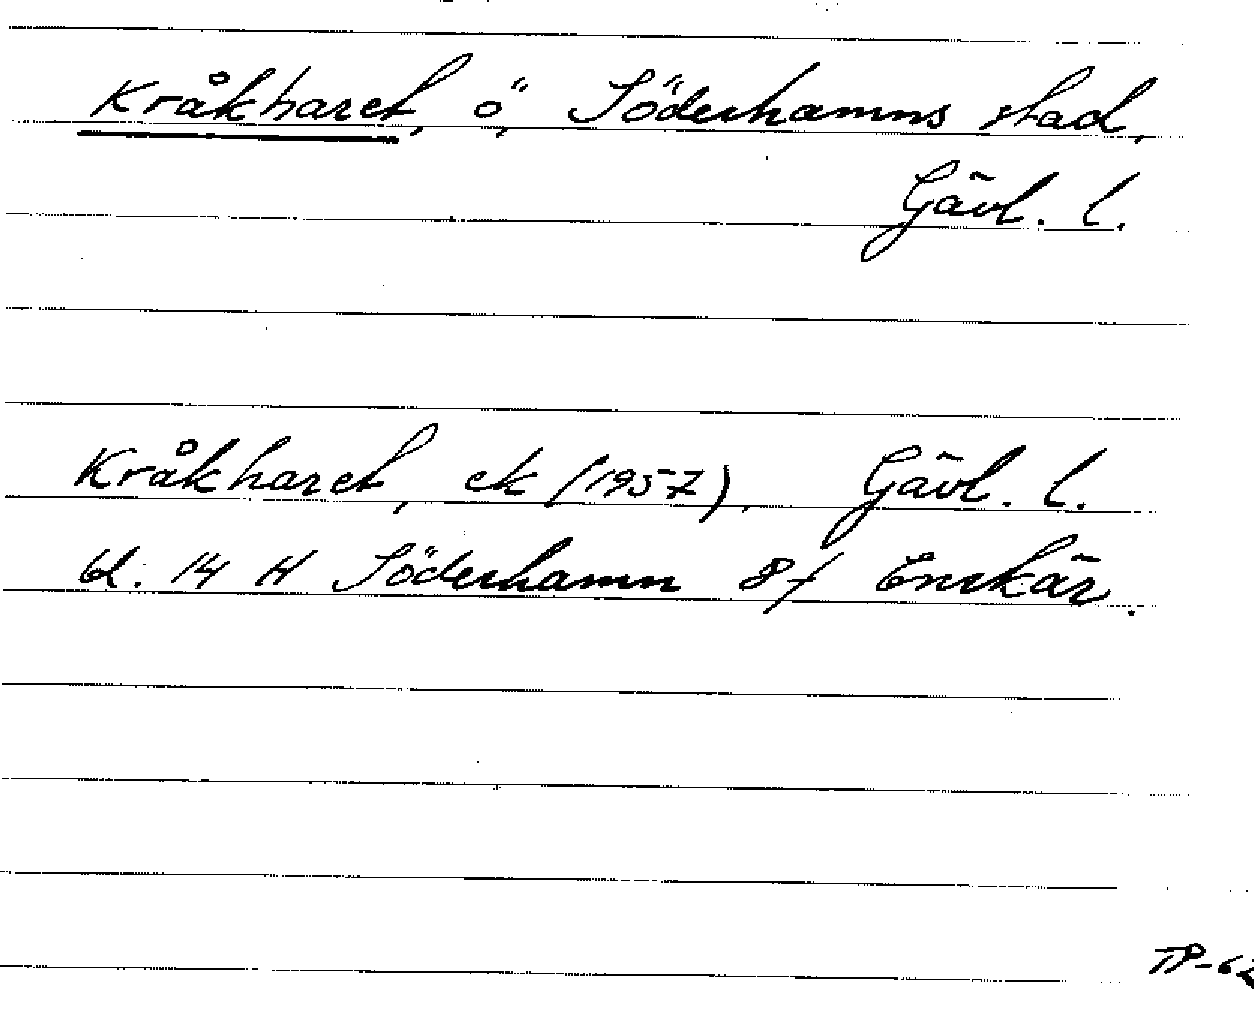 Kråkharet, ö, Söderhamns stad,
Gävl. l.
Kråkharet, ek (1957), Gävl. l.
bl. 14 H Söderhamn 8f Enskär.
TP-62